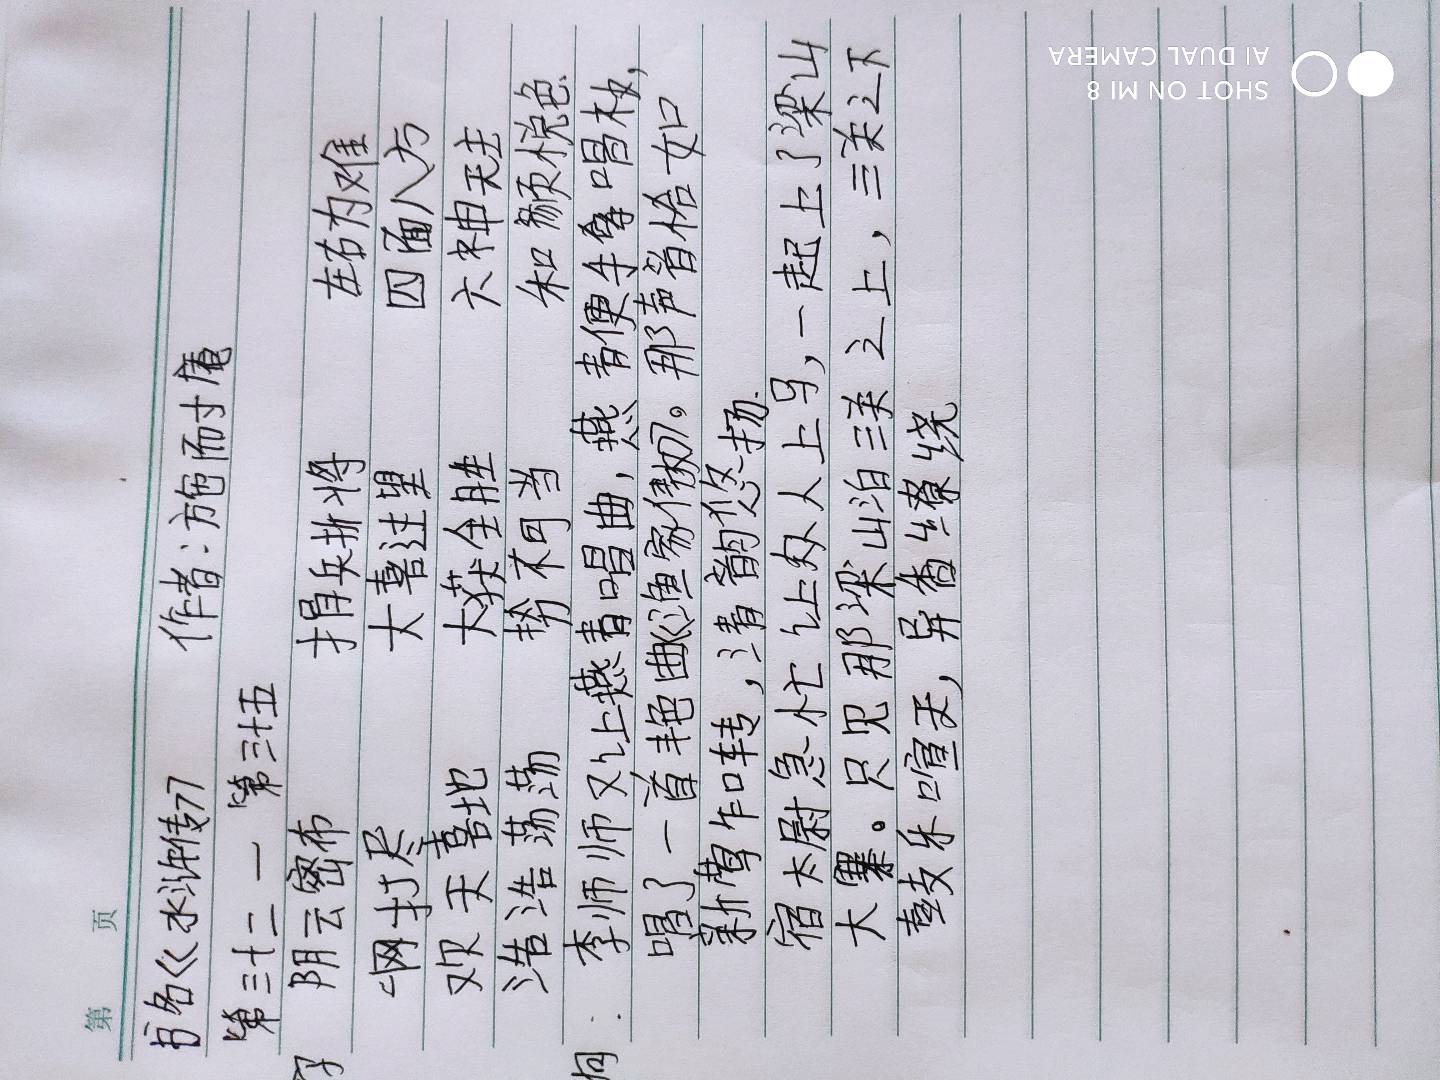 第 页
书名《水浒传》 作者:施耐庵
第三十二 — 第三十五
阴云密布 损兵折将 左右为难
一网打尽 大喜过望 四面八方
欢天喜地 大获全胜 六神无主
浩浩荡荡 势不可当 和颜悦色.
李师师又让燕青唱曲,燕青便手拿唱板,
唱了一首艳曲《渔家傲》。那声音恰如
新莺乍啭,清韵悠扬.
宿太尉急忙让众人上马,一起上了梁山
大寨。只见那梁山泊三关之上,三关之下
鼓乐喧天,异香缭绕
SHOT ON MI 8
AI DUAL CAMERA